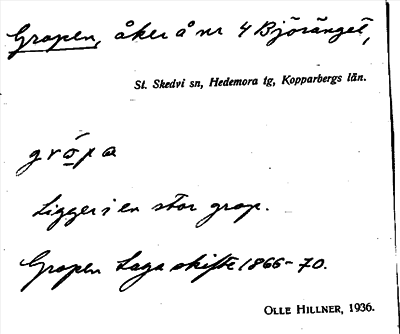 Gropen, åker å nr 4 Björänget,
St. Skedvi sn, Hedemora tg, Kopparbergs län.
grópa
Ligger i en stor grop.
Gropen Laga skifte 1866-70.
OLLE HILLNER, 1936.